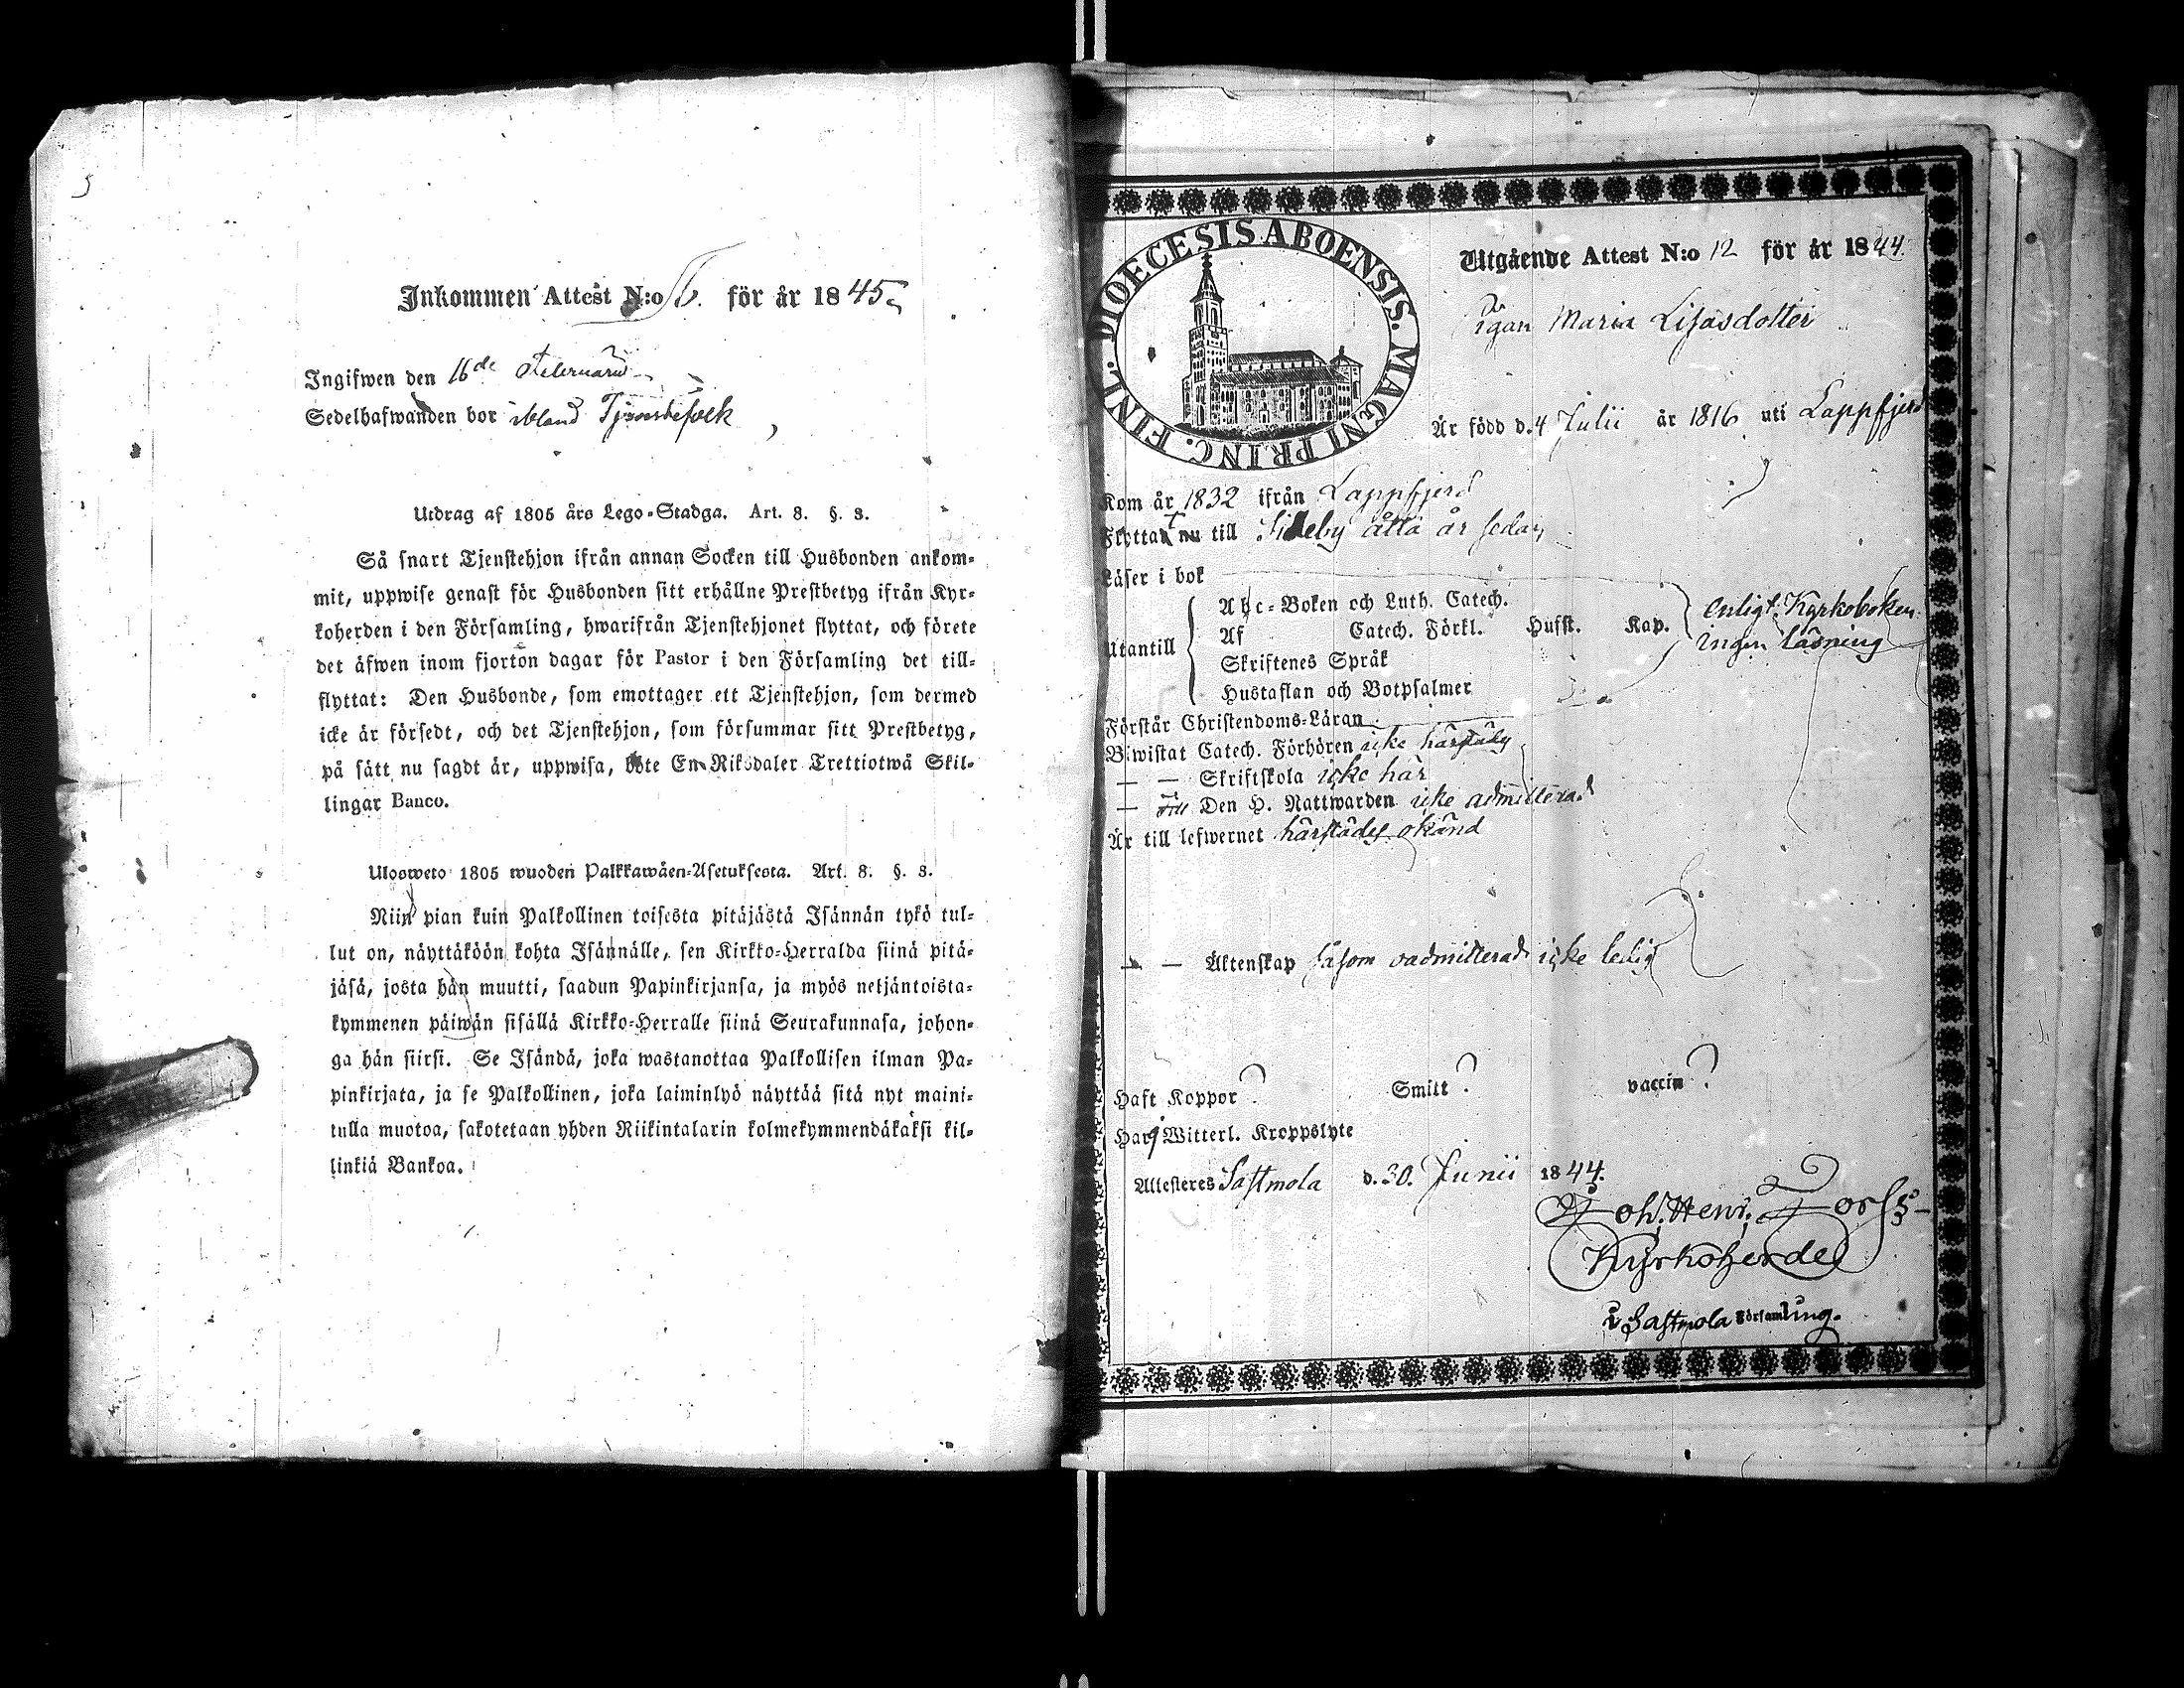 5
Inkommen Attest N:o 6. för år 1845
Ingifwen den 16de Februarii
Sedelhafwanden bor ibland Tjenstefolk
Utdrag af 1805 års Lego-Stadga. Art. 3. §. 3.
Så snart Tjenstehjon ifrån annan Socken till Husbonden ankom-
mit, uppwise genast för Husbonden sitt erhållne Prestbetyg ifrån Kyr-
koherden i den Församling, hwarifrån Tjenstehjonet flyttat, och förete
det äfwen inom fjorton dagar för Pastor i den Församling det till-
flyttat: Den Husbonde, som emottager ett Tjenstehjon, som dermed
icke är försedt, och det Tjenstehjon, som försummar sitt Prestbetyg,
på sätt nu sagdt är, uppwisa, böte En Riksdaler Trettiotwå Skil-
lingar Banco.
Ulosweto 1805 wuoden Palkkawäen-Asetuksesta. Art. 3. §. 3.
Niin pian kuin Palkollinen toisesta pitäjästä Isännän tykö tul-
lut on, näyttäköön kohta Isännälle, sen Kirkko-Herralda siinä pitä-
jäsä, josta hän muutti, saadun Papinkirjansa, ja myös neljäntoista-
kymmenen päiwän sisällä Kirkko-Herralle siinä Seurakunnasa, johon-
ga hän siirsi. Se Isändä, joka wastanottaa Palkollisen ilman Pa-
pinkirjata, ja se Palkollinen, joka laiminlyö näyttää sitä nyt maini-
tulla muotoa, sakotetaan yhden Riikintalarin kolmekymmendäkaksi kil-
linkiä Bankoa.
DIOECESIS ABOENSIS. MAGNI PRINC. FINL.
Utgående Attest N:o 12 för år 1844.
Pigan Maria Lisasdotter
Är född d. 4 Julii år 1816 uti Lappfjerd
Kom år 1832 ifrån Lappfjerd
Flyttat nu till Sideby åtta år sedan
Läser i bok
Abc-Boken och Luth. Catech.
Utantill Af Catech. Förkl. Husst. Kap. enligt Kyrkoboken
ingen läsning
Skriftenes Språk
Hustaflan och Botpsalmer
Förstår Christendoms-Läran
Biwistat Catech. Förhören icke härstädes
— — Skriftskola icke här
— till Den H. Nattwarden icke admitterad
Är till lefwernet härstädes okänd
— — Äktenskap såsom oadmitterad icke ledig
Haft Koppor ? Smitt ? vaccin ?
Har ej Witterl. Kroppslyte
Attesteres Sastmola d. 30. Junii 1844.
Joh. Henr. Forss
Kyrkoherde
i Sastmola Församling.